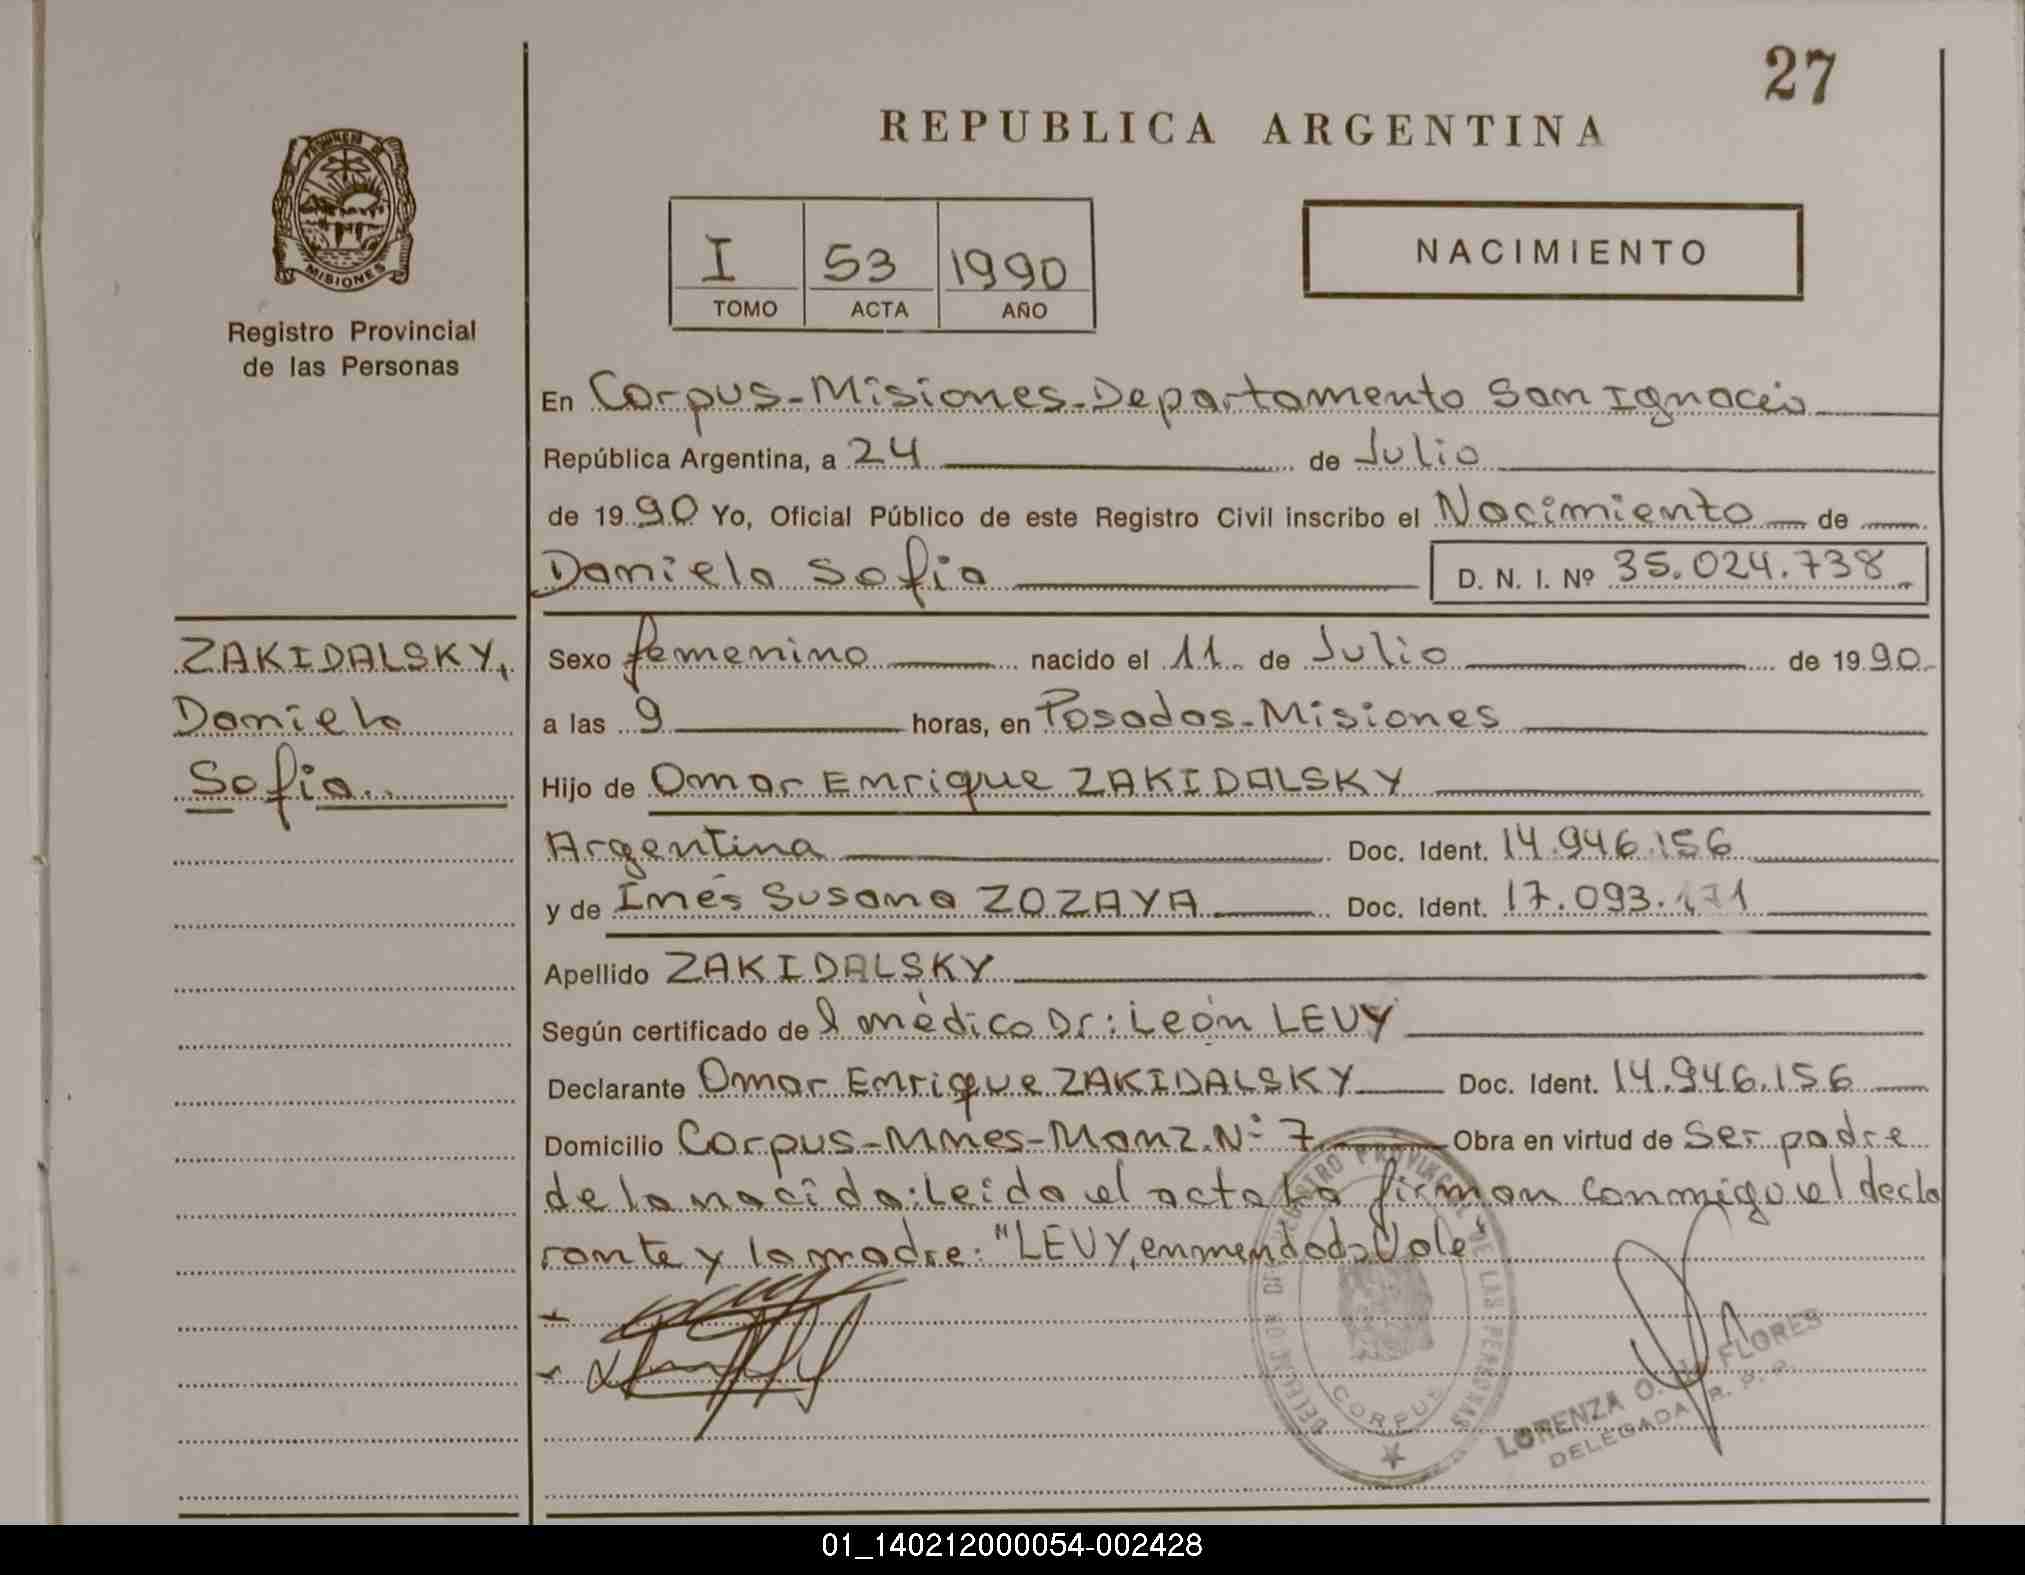 27
REPUBLICA ARGENTINA
PROVINCIA DE
MISIONES
Registro Provincial
de las Personas
I 53 1990
TOMO ACTA AÑO
NACIMIENTO
En Corpus-Misiones-Departamento San Ignacio
República Argentina, a 24 de Julio
de 1990 Yo, Oficial Público de este Registro Civil inscribo el Nacimiento de
Daniela Sofia D. N. I. Nº 35.024.738
ZAKIDALSKY,
Daniela
Sofia
Sexo femenino nacido el 11 de Julio de 1990
a las 9 horas, en Posadas-Misiones
Hijo de Omar Enrique ZAKIDALSKY
Argentina Doc. Ident. 14.946.156
y de Inés Susana ZOZAYA Doc. Ident. 17.093.171
Apellido ZAKIDALSKY
Según certificado de l médico Dr: León LEVY
Declarante Omar Enrique ZAKIDALSKY Doc. Ident. 14.946.156
Domicilio Corpus-Mnes-Manz.Nº 7 Obra en virtud de Ser padre
de la nacida: Leida el acta la firman conmigo el decla
rante y la madre: "LEVY, enmendado Vale"
REGISTRO PROVINCIAL DE LAS PERSONAS
CORPUS
LORENZA O. FLORES
DELEGADA R. P. P.
01_140212000054-002428